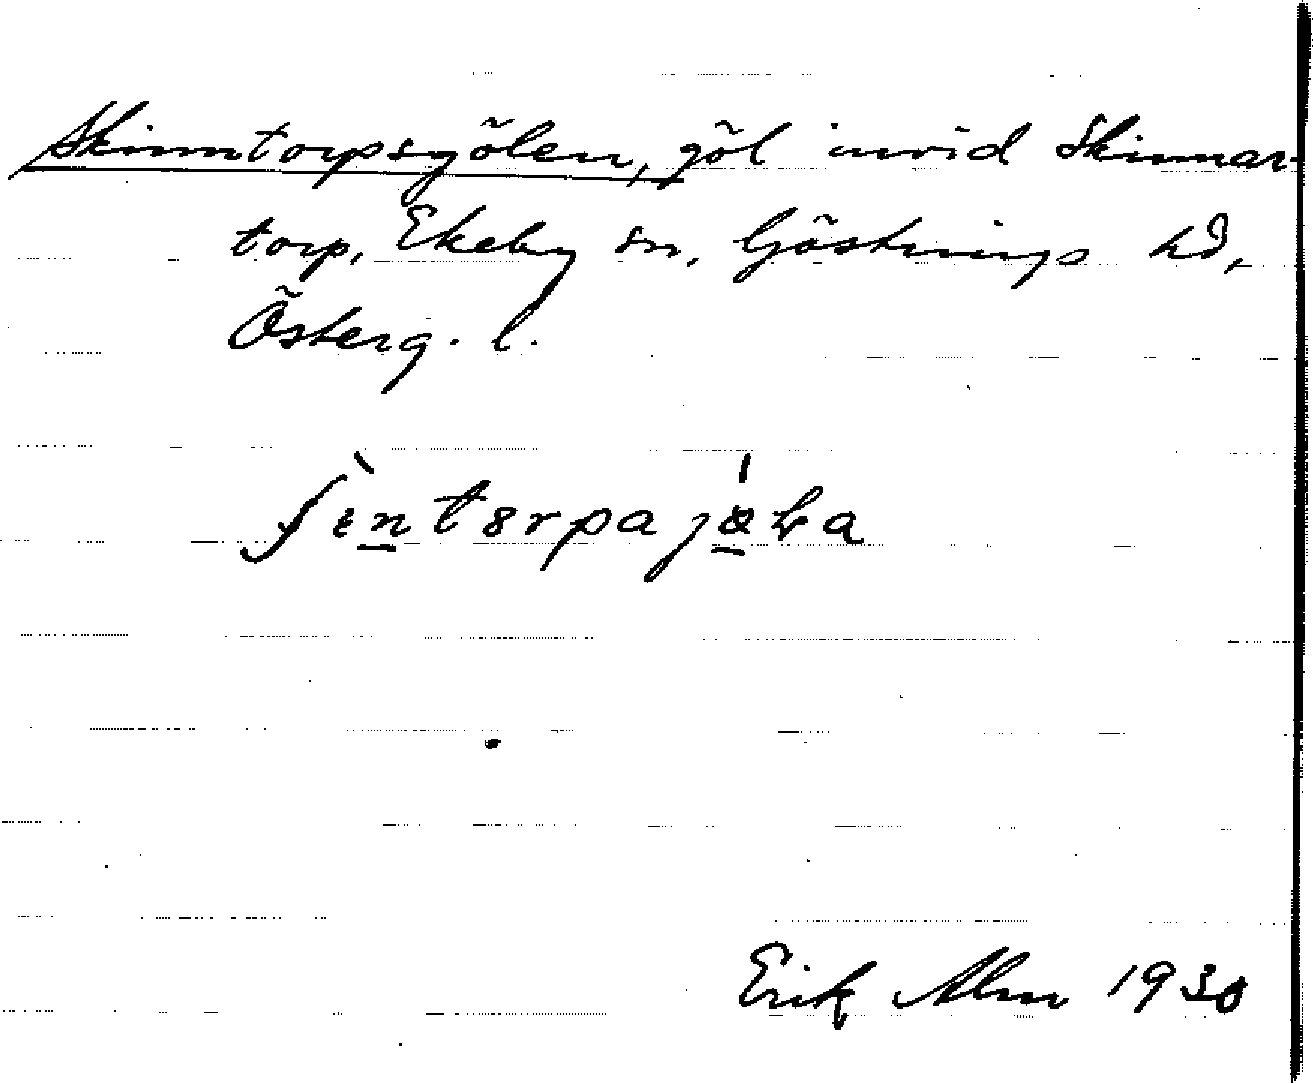 Skinntorpsgölen, göl invid Skinnar-
torp, Ekeby sn, Göstrings hd,
Österg. l.
Erik Alm 1930